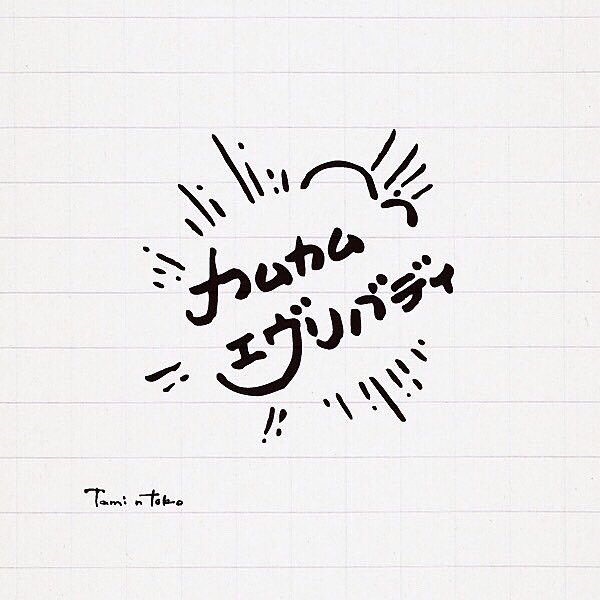 カムカム
エヴリバディ
Tami n Toko